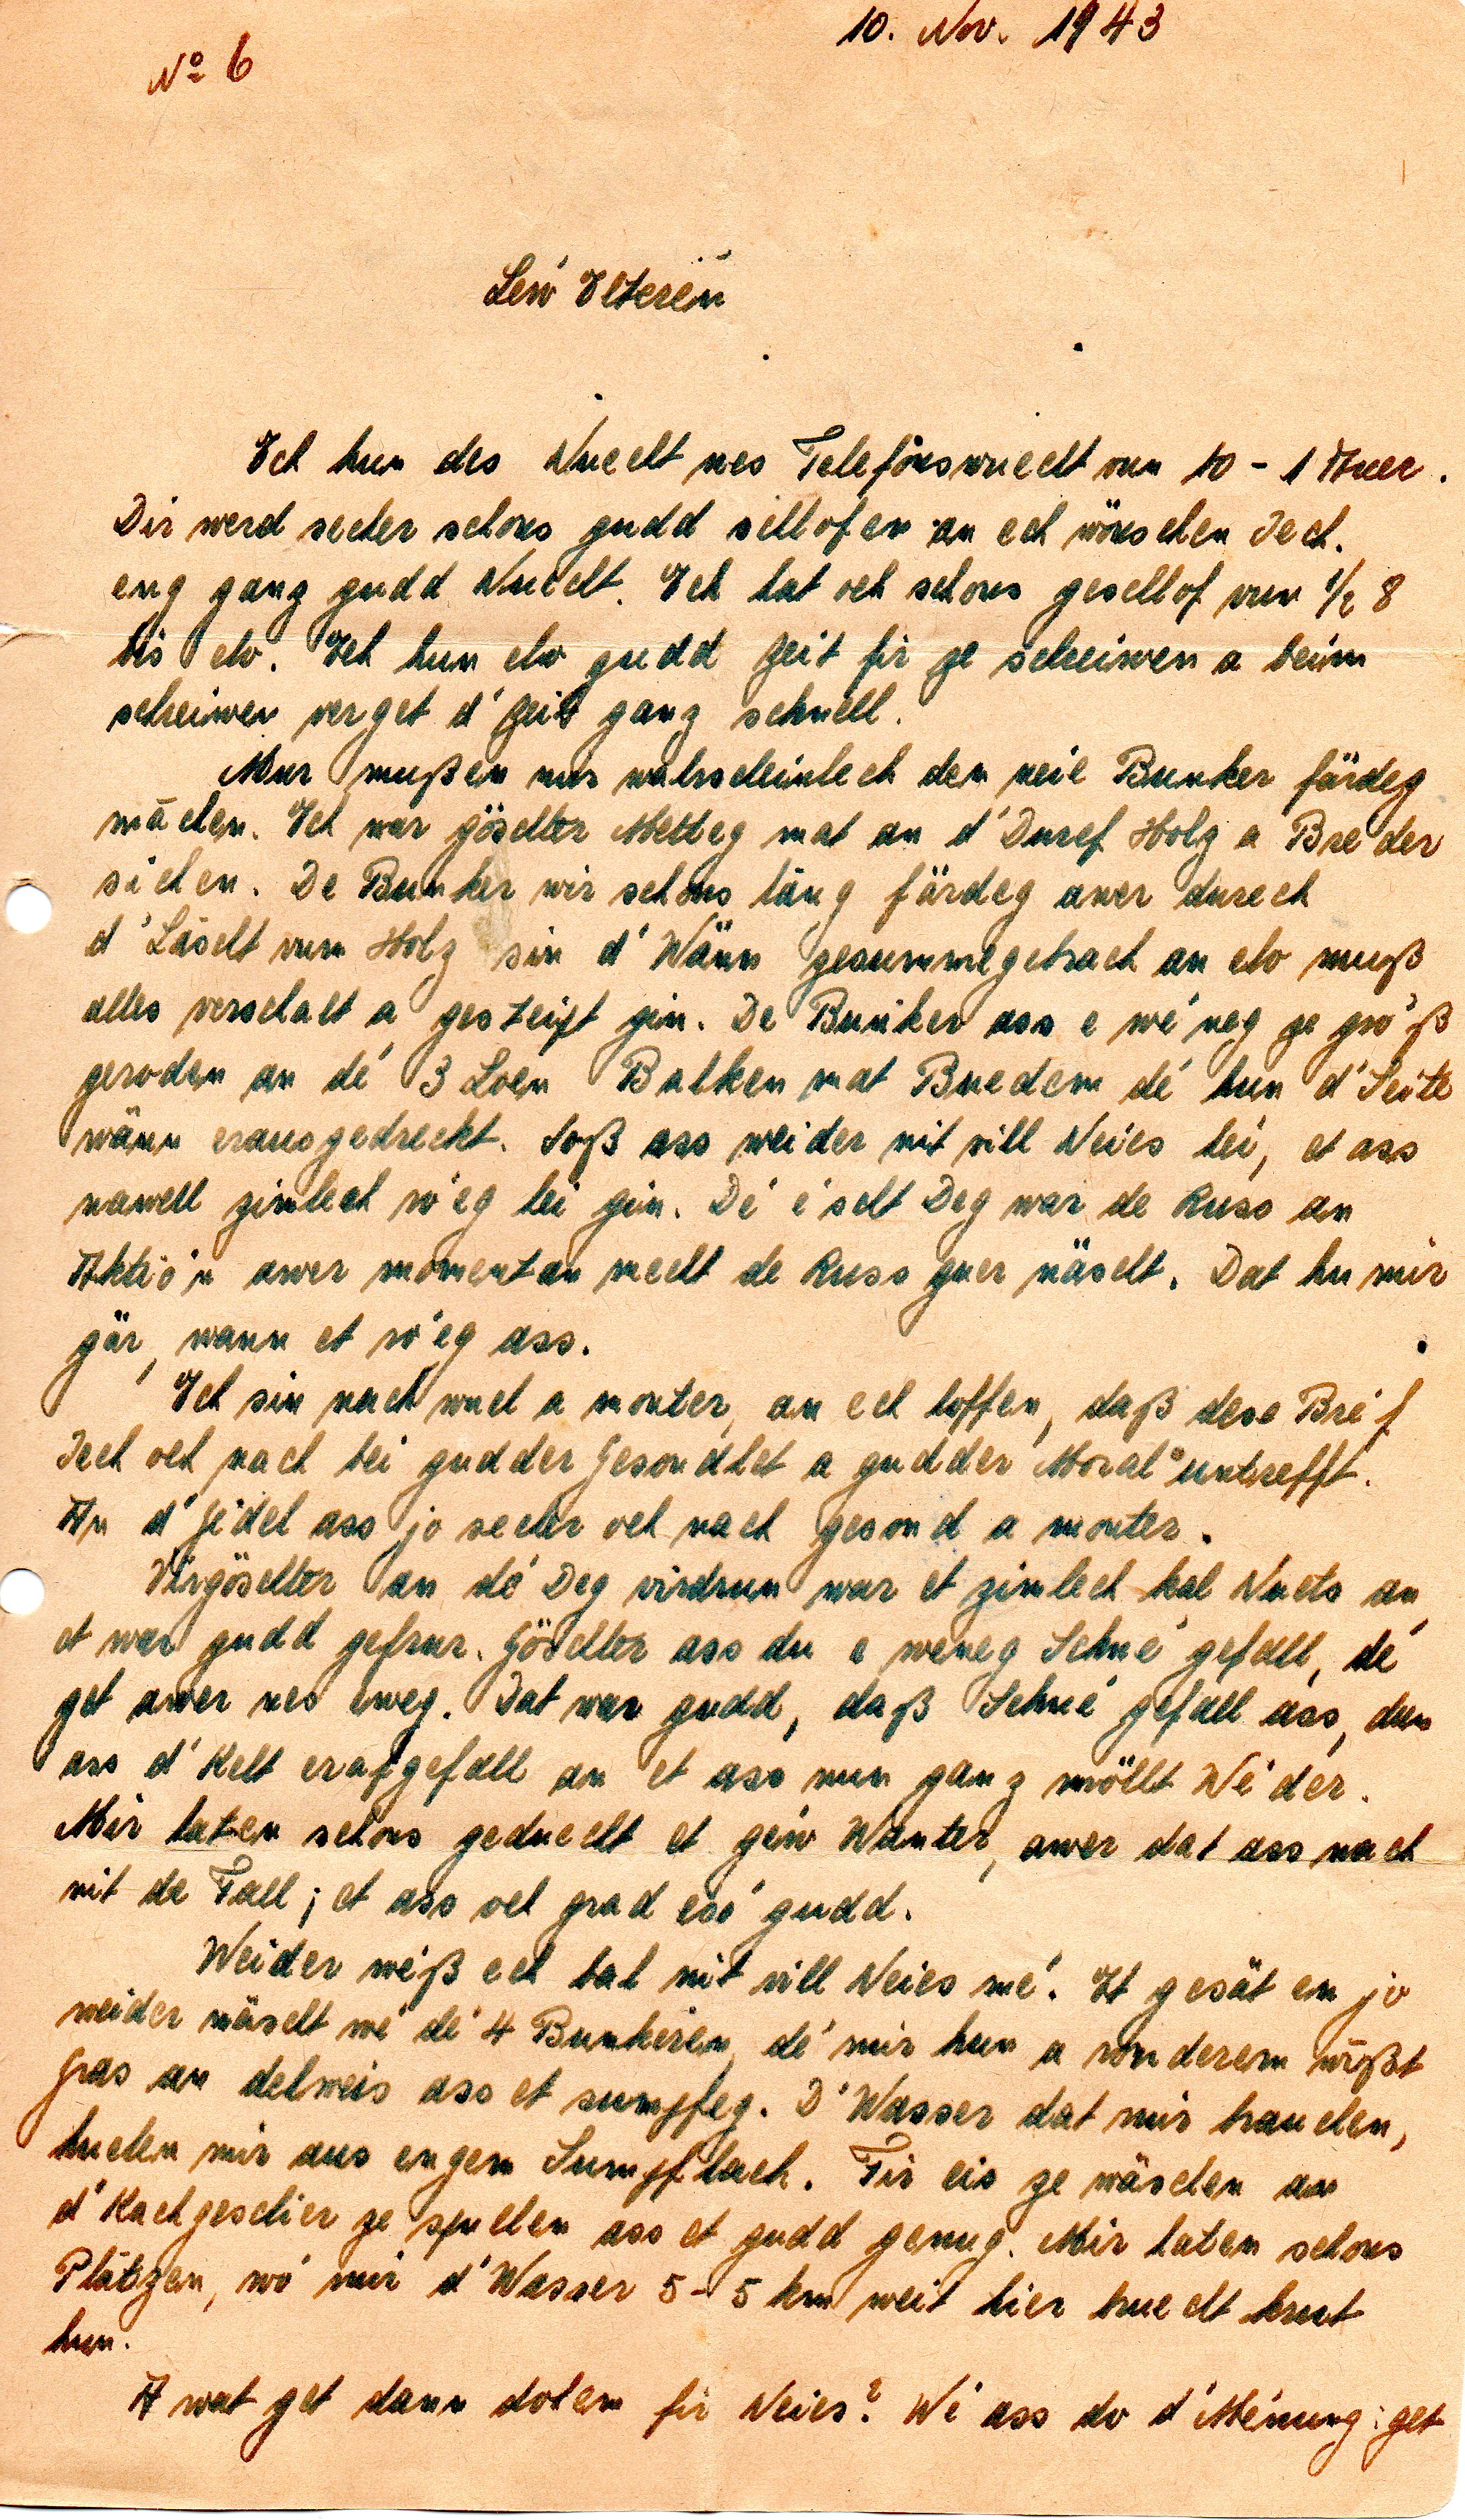 10. Nov. 1943
No 6
Léw Elteren
Ech hun des Nuecht nes Telefonswuecht vun 10 - 1 Auer.
Dir werd secher schons gudd schlofen an ech wönschen Iech
eng ganz gudd Nuecht. Ech hat och schons geschlof vun 1/2 8
bis elo. Ech hun elo gudd Zeit fir ze schreiwen a beim
schreiwen verget d'Zeit ganz schnell.
Mur mußen mir wahrscheinlech den neie Bunker färdeg
máchen. Ech war göschter Metteg mat an d'Duref Holz a Brieder
sichen. De Bunker wir schons läng färdeg awer durech
d'Läscht vum Holz sin d'Wänn zesummegebrach an elo muß
alles verschalt a gesteipt gin. De Bunker ass e wéneg ze gróß
geroden an dé 3 Loen Balken mat Buedem dé hun d'Seite
wänn erausgedreckt. Soß ass weider nit vill Neies bei, et ass
nawell zimlech róeg hei gin. Dé éischt Deg war de Russ an
Aktión awer momentan mecht de Russ guer näscht. Dat hu mir
gär, wann et róeg ass.
Ech sin nach wuel a monter, an ech hoffen, daß dese Bréf
Iech och nach bei gudder Gesondhet a gudder "Moral" untrefft.
An d'Gidel ass jo secher och nach gesond a monter.
Virgöschter an dé Deg virdrun war et zimlech kal Nuets an
et war gudd gefrur. Göschter ass du e weneg Schné gefall, dé
get awer nes eweg. Dat war gudd, daß Schné gefall ass, dun
ass d'Kelt erafgefall an et ass nun ganz möllt Wéder.
Mir haten schons geduecht et géiw Wanter, awer dat ass nach
nit de Fall; et ass och grad esó gudd.
Weider weiß ech bal nit vill Neies mé. Et gesät en jo
weider näischt wé dé 4 Bunkeren, dé mir hun a ronderem wößt
Gras an delweis ass et sumpfeg. D'Wasser dat mir brauchen,
huelen mir aus engem Sumpflach. Fir eis ze wäschen an
d'Kachgeschier ze spullen ass et gudd genug. Mir haten schons
Plätzen, wó mir d'Wasser 5-5 km weit hier bruecht krut
hun.
A wat get dann doheem fir Neies? Wé ass do d'Ménung: get